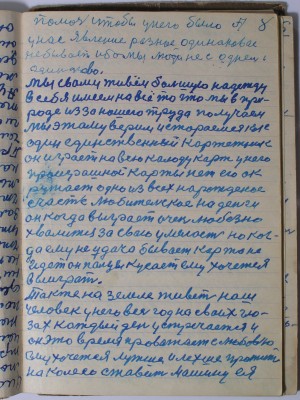 помож чтобы у него было А 8
у нас явление разное одинаково
небывает ибо мы люди не с однем
одинаково.
Мы свами живём большую надежду
в себя имеем на всё то что мы в при-
роде из за нашего труда получаем
мы этому верим и стораемся как
один единственный картежник
он играет на всю калоду карт у него
проиграшной карты нет его ок
ружает одно из всех нарожденое
счасте любительское на денги
он когда выиграет очен любезно
хвалится за свою умелост но ког-
да ему не удача бывает карта не
идет он пальцы кусает ему хочется
выиграт.
Так те на земле живет наш
человек у него всё годно на своих гла-
зах каждый ден и встречается и
он это время проважает с любовю
ему хочется лутше и легше прожит
на колесо ставит машину ея